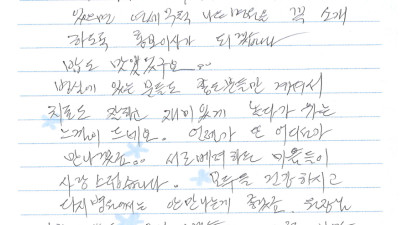 있으면 나누리병원을 꼭 소개
하도록 홍보이사가 되겠습니다
밥도 맛있었구요....
병실에 있는 분들도 좋은분들만 계셔서
치료도 잘하고 재미있게 놀다가 가는
느낌이 드네요. 언젠가 또 어디선가
만나겠죠.. 서로 배려하는 마음들이
사랑스럽습니다. 모두들 건강하시고
다시 병원에서는 안만나는게 좋겠죠. 원장님